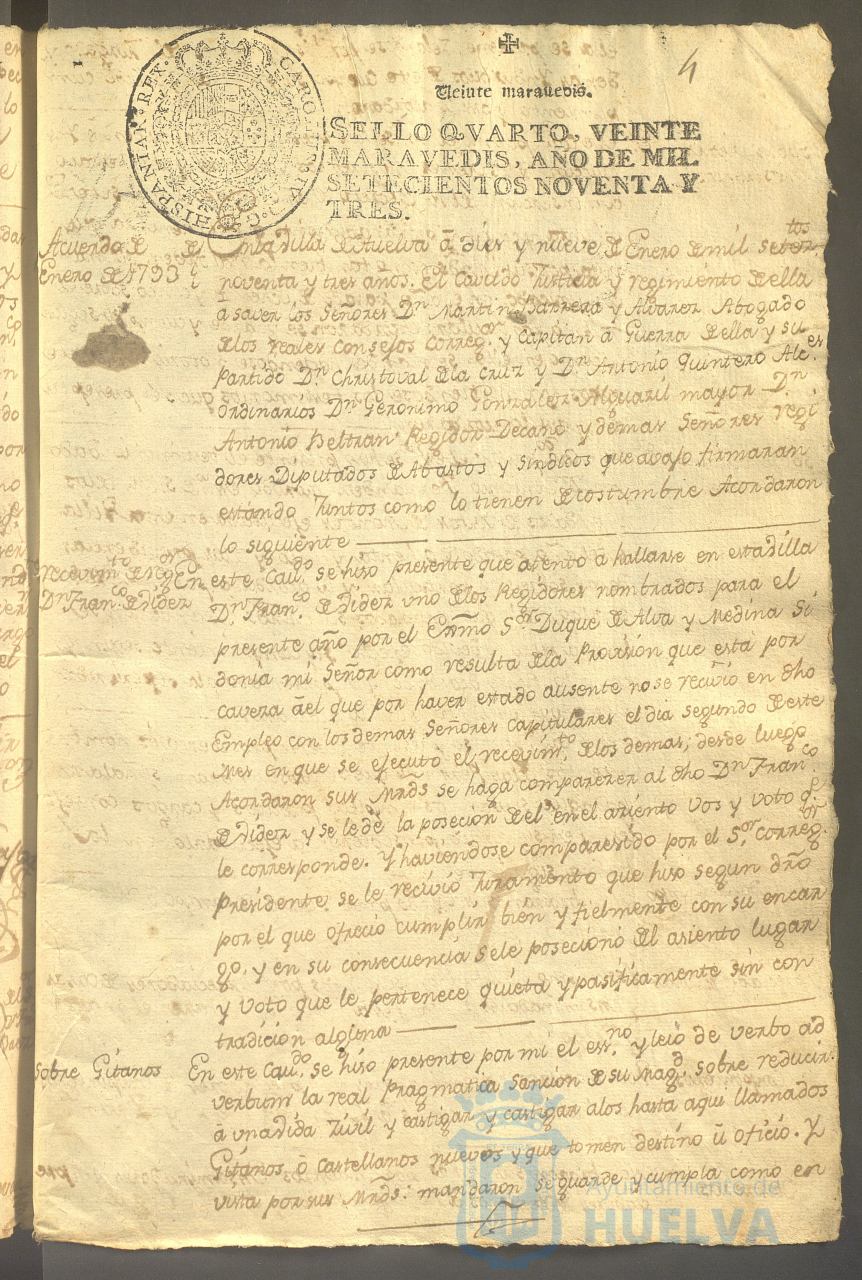 4
Veinte maravedis.
SELLO QVARTO, VEINTE
MARAVEDIS, AÑO DE MIL
SETECIENTOS NOVENTA Y
TRES.
HISPANIAR. REX. CAROLUS IV D. G.
Acuerdo de
Enero de 1793
En la Villa de Huelva á dies y nueve de Enero de mil setez.tos
noventa y tres años. El Cavildo Justicia y regimiento de ella
a saver los Señores Dn. Martin Barrera y Alvarez Abogado
de los reales consejos Correg.or y Capitan á Guerra de ella y su
Partido Dn. Christoval de la Cruz y Dn. Antonio Quintero Alc.es
ordinarios Dn. Geronimo Gonzalez Alguazil mayor Dn.
Antonio Beltran Regidor Decano y demas Señores regi
dores Diputados de Abastos y Sindicos que avajo firmaran
estando Juntos como lo tienen de costumbre Acordaron
lo siguiente
recevim.to de reg.or
Dn. Fran.co de Nidez
En este Cav.do se hiso presente que atento a hallarse en esta Villa
Dn. Fran.co de Nidez uno de los Regidores nombrados para el
presente año por el Exmo S.or Duque de Alva y Medina Si
donia mi Señor como resulta de la Provision que esta por
cavera á el que por haver estado ausente no se recivio en dho
Empleo con los demas Señores capitulares el dia segundo de este
Mes en que se ejecutó el recevim.to de los demas; desde luego
Acordaron sus Mrds. se haga comparezer al dho Dn. Fran.co
de Nidez y se le dé la posecion de el en el asiento vos y voto q.e
le corresponde. Y haviendose comparesido por el S.or Correg.or
Presidente se le recivio Juramento que hiso segun dro
por el que ofrecio cumplir bien y fielmente con su encar
go. y en su consecuencia se le posecionó del asiento lugar
y voto que le pertenece quieta y pasificamente sin con
tradicion alguna
Sobre Gitanos
En este Cav.do se hiso presente por mi el ess.no y leio de verbo ad
verbum la real Pragmatica Sancion de su Mag.d sobre reducir
á una vida Zivil y castigar y castigar a los hasta aqui llamados
Gitanos, ó Castellanos nuevos y que tomen destino ú oficio. Y
vista por sus Mrds: mandaron se guarde y cumpla como en
Ayuntamiento de
HUELVA